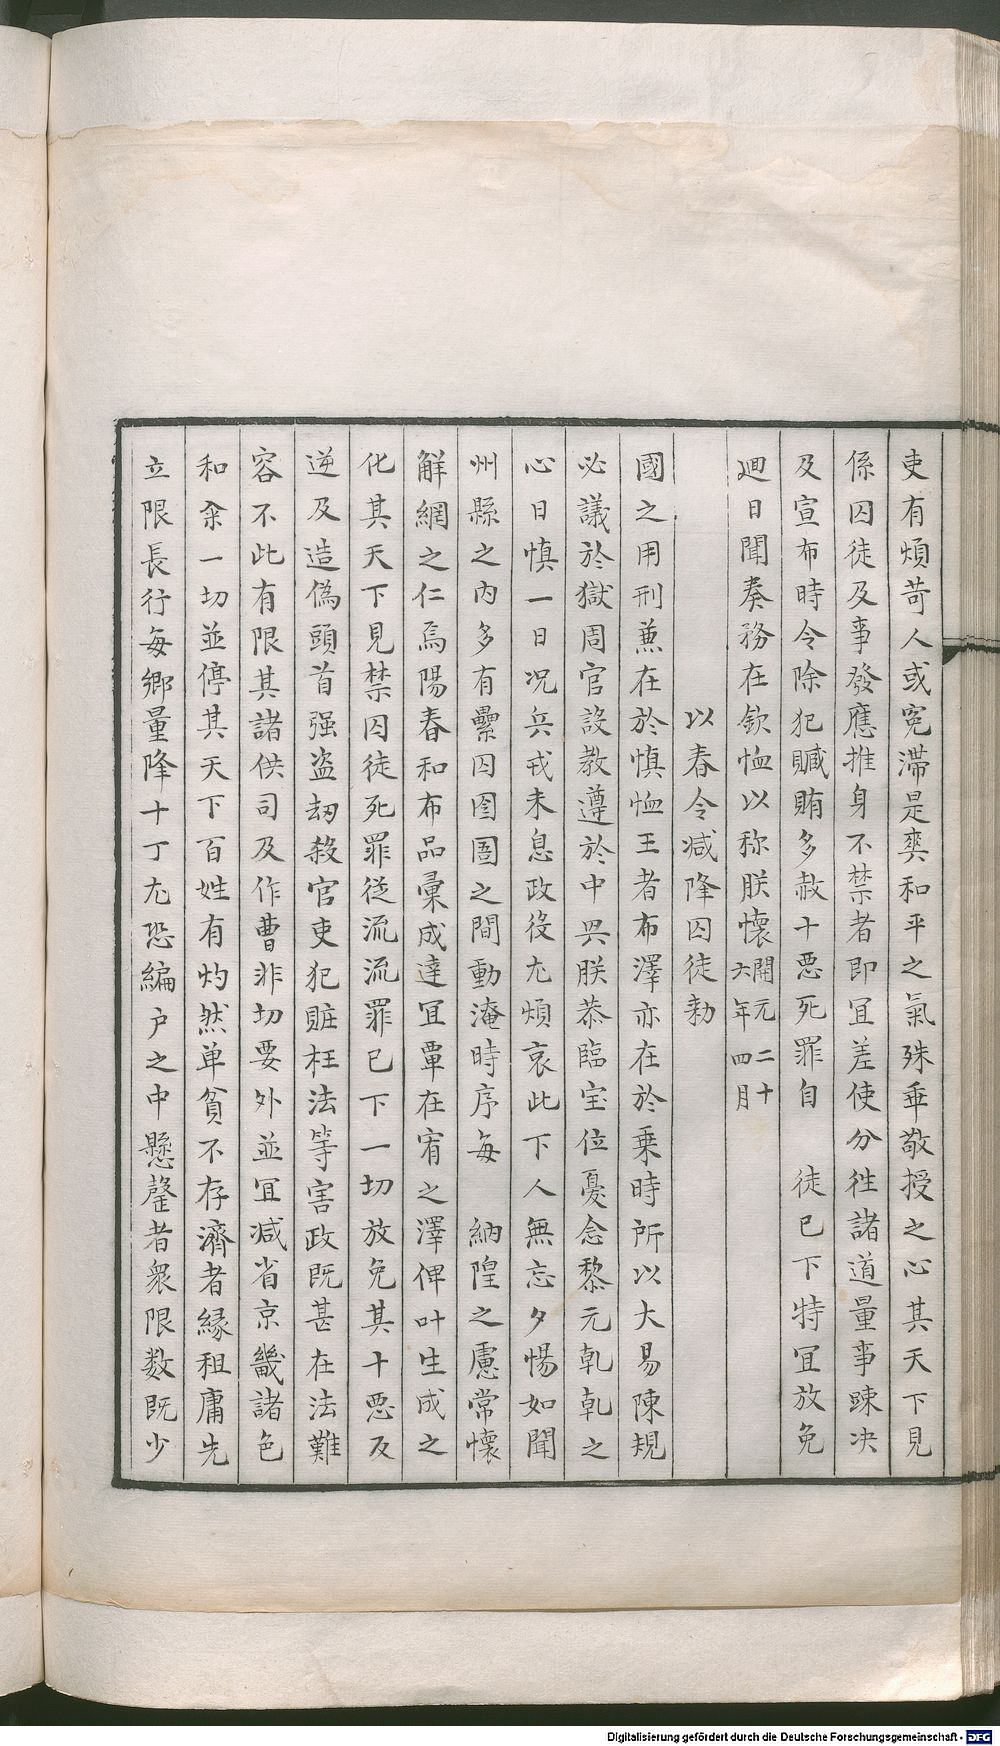 吏有煩苛人或寃滯是爽和平之氣殊乖敬授之心其天下見
係囚徒及事發應推身不禁者即冝差使分徃諸道量事踈决
及宣布時令除犯贓賄多赦十惡死罪自　徒已下特冝放免
廻日聞奏務在欽恤以称朕懷開元二十六年四月
以春令减降囚徒勅
國之用刑兼在於慎恤王者布澤亦在於乗時所以大易陳規
必議於獄周官設教遵於中典朕恭臨宝位憂念黎元乹乹之
心日慎一日况兵戎未息政役尤煩哀此下人無忘夕惕如聞
州縣之内多有纍囚囹圄之間動淹時序每　納隍之慮常懷
觧網之仁焉陽春和布品彚成達冝覃在宥之澤俾叶生成之
化其天下見禁囚徒死罪従流流罪已下一切放免其十惡及
逆及造偽頭首强盗刼殺官吏犯賍枉法等害政既甚在法難
容不此有限其諸供司及作曹非切要外並冝减省京畿諸色
和籴一切並停其天下百姓有灼然单貧不存濟者縁租庸先
立限長行每鄉量降十丁尤恐編户之中懸罄者衆限数既少
Digitalisierung gefördert durch die Deutsche Forschungsgemeinschaft - DFG